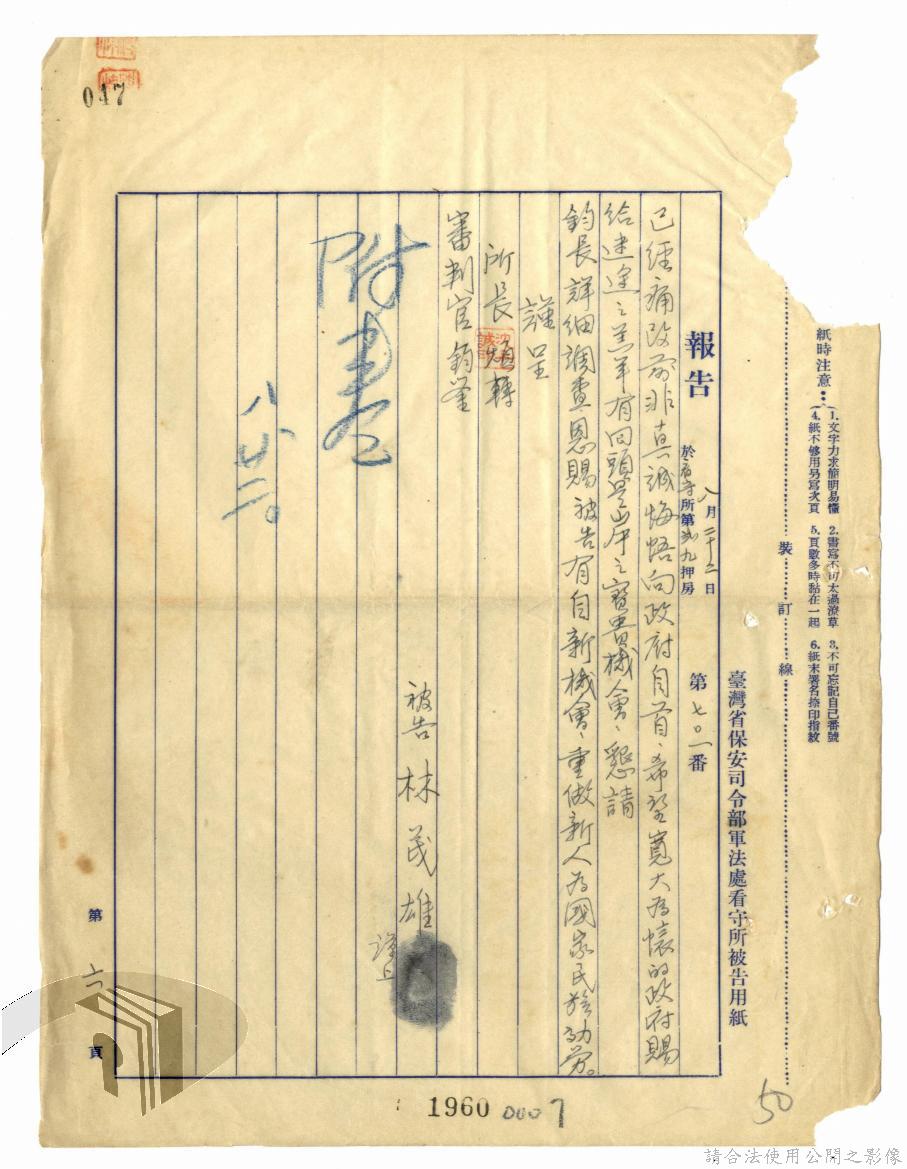 047
紙時注意：
1.文字力求簡明易懂 2.書寫不可太過潦草 3.不可忘記自己番號
4.紙不够用另寫次頁 5.頁數多時黏在一起 6.紙末署名捺印指紋
裝訂線
臺灣省保安司令部軍法處看守所被告用紙
報告
八月二十二日
於看守所第 九押房
第七〇一番
已經痛改前非真誠悔悟向政府自首、希望寬大為懷的政府賜
給迷途之羔羊有回頭是岸之寶貴機會、懇請
鈞長詳細調查恩賜被告有自新機會、重做新人為國家民族効勞。
謹呈
所長 轉
審判官鈞鑒
被告 林茂雄
謹上
附卷
八 廿二。
第六頁
1960 0007
50
請合法使用公開之影像